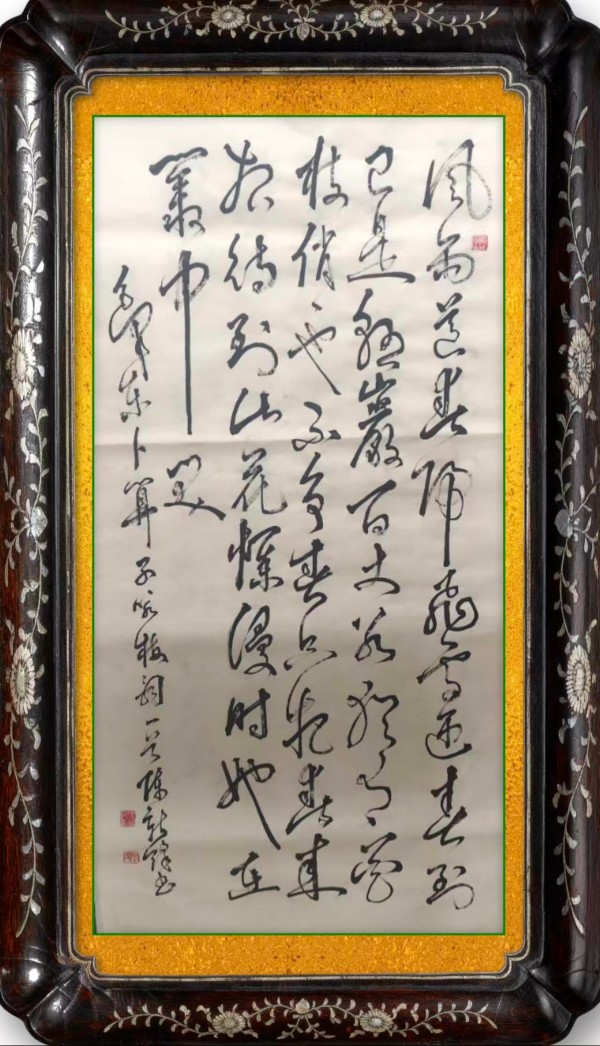 風雨送春歸飛雪迎春到
已是懸巖百丈冰猶有花
枝俏也不争春只把春來
報待到山花爛漫时她在
叢中笑
毛澤東卜算子咏梅詞一首陳书